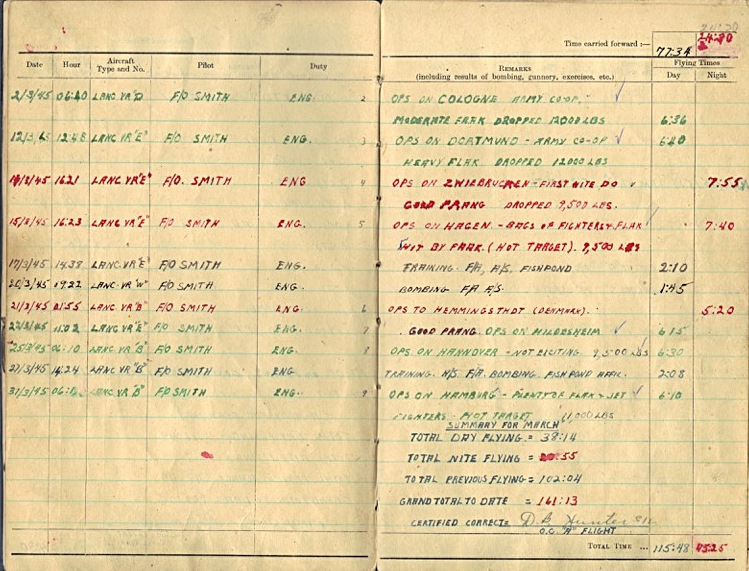 74:20
Time carried forward :— 77:34 14:30
Date Hour Aircraft Type and No. Pilot Duty
REMARKS
(including results of bombing, gunnery, exercises, etc.)
Flying Times
Day Night
2/3/45 06:40 LANC VR'D' F/O SMITH ENG. 2 OPS ON COLOGNE ARMY CO-OP.
MODERATE FLAK DROPPED 12000 LBS 6:36
12/3/45 12:48 LANC VR"E" F/O. SMITH ENG. 3 OPS ON DORTMUND - ARMY CO-OP 6:40
HEAVY FLAK DROPPED 12000 LBS
14/3/45 1621 LANC VR"E" F/O. SMITH ENG 4 OPS ON ZWIEBRUCKEN - FIRST NITE DO 7:55
GOOD PRANG DROPPED 9,500 LBS.
15/3/45 16:23 LANC VR"E" F/O SMITH ENG. 5 OPS ON HAGEN - BAGS OF FIGHTERS & FLAK 7:40
HIT BY FLAK. (HOT TARGET). 9,500 LBS
17/3/45 14:38 LANC. VR"E" F/O SMITH ENG. TRAINING. F/A, A/S. FISHPOND 2:10
20/3/45 1922 LANC VR"W" F/O SMITH ENG. BOMBING F/A A/S. 1:45
21/3/45 01:55 LANC VR"B" F/O SMITH ENG. 6 OPS TO HEMMINGSTHDT (DENMARK). 5:20
22/3/45 11:02 LANC VR"E" F/O SMITH ENG 7 GOOD PRANG. OPS ON HILDESHEIM 6:15
25/3/45 06:10 LANC VR "B" F/O SMITH ENG 8 OPS ON HANNOVER - NOT EXCITING 9,500 LBS 6:30
27/3/45 14:24 LANC VR"B" F/O SMITH ENG TRAINING. H/S. F/A. BOMBING FISHPOND AFFIL. 2:08
31/3/45 LANC VR"B" F/O SMITH ENG. 9 OPS ON HAMBURG - PLENTY OF FLAK & JET 6:10
FIGHTERS - HOT TARGET 11,000 LBS
SUMMARY FOR MARCH
TOTAL DAY FLYING = 38:14
TOTAL NITE FLYING = 20:55
TOTAL PREVIOUS FLYING = 102:04
GRAND TOTAL TO DATE = 161:13
CERTIFIED CORRECT = D.B. Hunter
O.C. "A" FLIGHT
TOTAL TIME ... 115:48 45:25